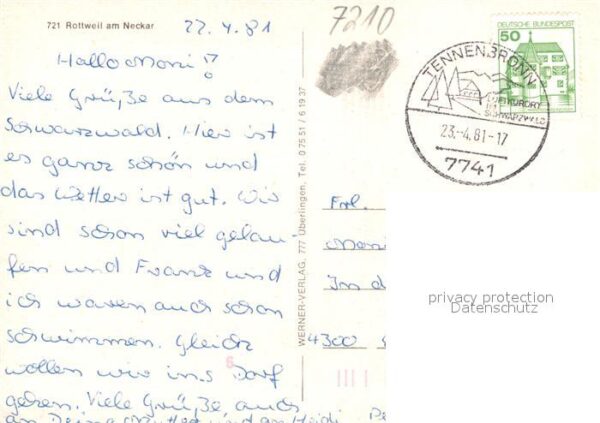 721 Rottweil am Neckar
22.4.81
7210
Hallo Moni!
Viele Grüße aus dem
Schwarzwald. Hier ist
es ganz schön und
das Wetter ist gut. Wir
sind schon viel gelau-
fen und Franz und
ich waren auch schon
schwimmen. Gleich
wollen wir ins Dorf
gehen. Viele Grüße auch
an Deine Mutter und an Heidi
WERNER-VERLAG, 777 Überlingen, Tel. 0 75 51 / 6 19 37
DEUTSCHE BUNDESPOST
50
TENNENBRONN
LUFTKURORT
IM
SCHWARZWALD
23.-4.81-17
7741
Frl.
Moni
In d
4300
6
privacy protection
Datenschutz